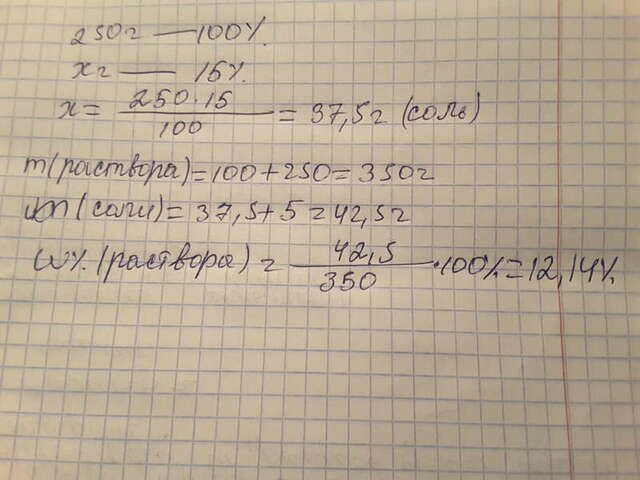 250г — 100%.
xг — 15%.
x = 250·15 / 100 = 37,5г (соль)
m(раствора) = 100 + 250 = 350г
m(соли) = 37,5 + 5 = 42,5г
W%.(раствора) = 42,5 / 350 · 100% = 12,14%